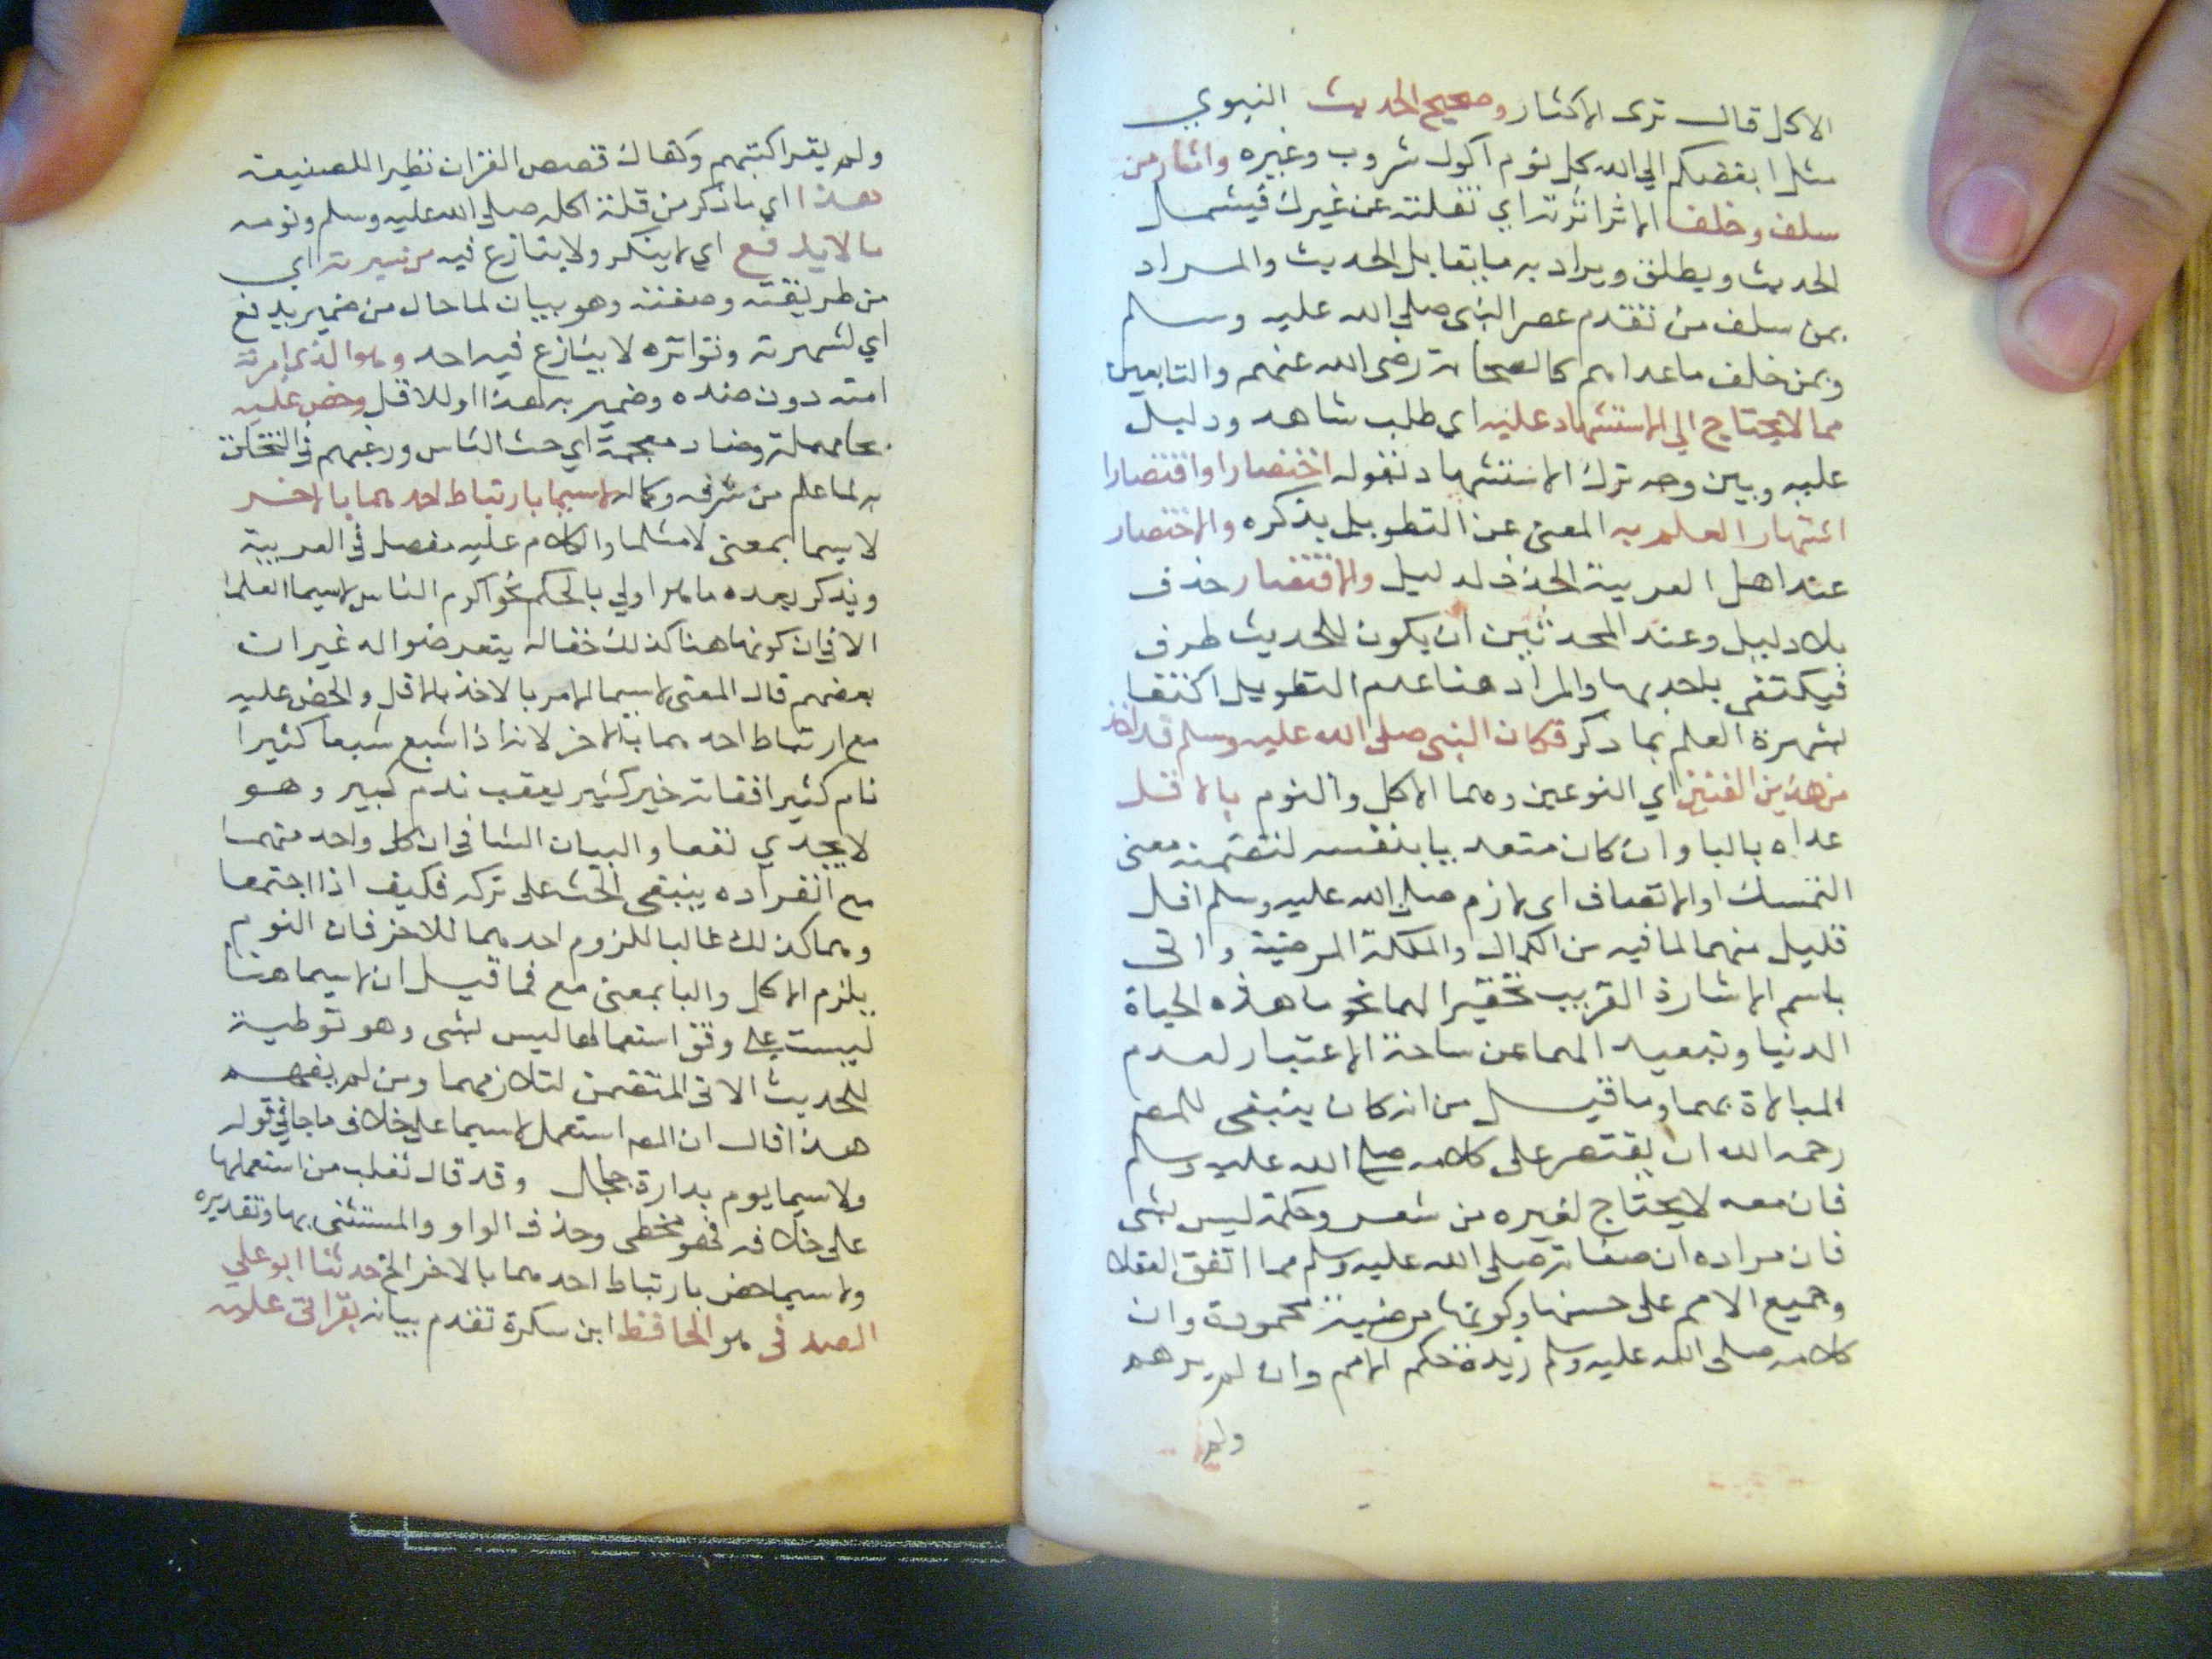 الاكل قال ترى الاكثار وصحيح الحديث النبوي
مثل ابغضكم الي الله كل نؤم اكول شروب وغيره واثار من
سلف وخلف الاثر اثرته اي نقلته عن غيرك فيشمل
الحديث ويطلق ويراد به ما يقابل الحديث والمراد
بمن سلف من تقدم عصر النبي صلي الله عليه وسلم
وبمن خلف ما عداهم كالصحابة رضي الله عنهم والتابعين
مما لا يحتاج الي الاستشهاد عليه اي طلب شاهد ودليل
عليه وبين وجه ترك الاستشهاد بقوله اختصارا واقتصارا
اشتهار العلم به المعنى عن التطويل بذكره والاختصار
عند اهل العربية الحذف لدليل والاقتصار حذف
بلا دليل وعند المحدثين ان يكون للحديث طرف
فيكتفى باحديها والمراد هنا عدم التطويل اكتفا
لشهرة العلم بما ذكر فكان النبي صلى الله عليه وسلم قد اخذ
من هذين الفنين اي النوعين وهما الاكل والنوم بالاقل
عداه بالبا وان كان متعد بيا بنفسه لتضمنه معنى
التمسك او الاتصاف اى لازم صلى الله عليه وسلم اقل
قليل منهما لما فيه من الكمال والملكة المرضية واتى
باسم الاشارة القريب تحقيرا لهما نحو ما هذه الحياة
الدنيا وتبعيد الهما عن ساحة الاعتبار لعدم
المبالاة بهما وما قيل من انه كان ينبغى للمص
رحمه الله ان يقتصر على كلامه صلى الله عليه وسلم
فان معه لا يحتاج لغيره من شعر وحكمة ليس بشى
فان مراده ان صفاته صلى الله عليه وسلم مما اتفق العقلا
وجميع الامم على حسنها وكونها مرضية محمودة وان
كلامه صلى الله عليه وسلم زبدة حكم الامم وان لم يرهم
ولم
ولم يقرا كتبهم وكفاك قصص القران نظيرا لصنيعه
هذا اي ما ذكر من قلة اكله صلى الله عليه وسلم ونومه
ما لا يدفع اي لا ينكر ولا يتنازع فيه من سيرته اي
من طريقته وصفته وهو بيان لما حال من ضمير يدفع
اي لشهرته وتواتره لا ينازع فيه احد وهو الذي امر به
امته دون ضده وضمير به لهذا او للاقل وحض عليه
بحا مهملة وضاد معجمة اي حث الناس ورغبهم في التخلق
به لما علم من شرفه وكماله لاسيما بارتباط احدهما بالاخر
لاسيما بمعنى لا مثلما والكلام عليه مفصل في العربية
ويذكر بعده ما هو اولي بالحكم نحو اكرم الناس لاسيما العلما
الا في ان كونها هنا كذلك خفا لم يتعرضوا له غير ان
بعضهم قال المعنى لاسيما الامر بالاخذ بالاقل والحض عليه
مع ارتباط احدهما بالاخر لانه اذا شبع شبعا كثيرا
نام كثيرا ففاته خير كثير يعقب ندم كبير وهو
لا يجدي نفعا والبيان الشافى ان كل واحد منهما
مع انفراده ينبغى الحث على تركه فكيف اذا اجتمعا
وهما كذلك غالبا للزوم احدهما للاخر فان النوم
يلزم الاكل والبا بمعنى مع فما قيل ان لاسيما هنا
ليست على وفق استعمالها ليس بشى وهو توطية
للحديث الاتى المتضمن لتلازمهما ومن لم يفهم
هذا قال ان المص استعمل لاسيما على خلاف ما جا في قوله
ولاسيما يوم بدارة جلجل وقد قال ثعلب من استعملها
على خلافه فهو مخطى وحذف الواو والمستثنى بها وتقديره
ولاسيما حض بارتباط احدهما بالاخر الخ حدثنا ابو علي
الصدفى هو الحافظ ابن سكرة تقدم بيانه بقراتى عليه